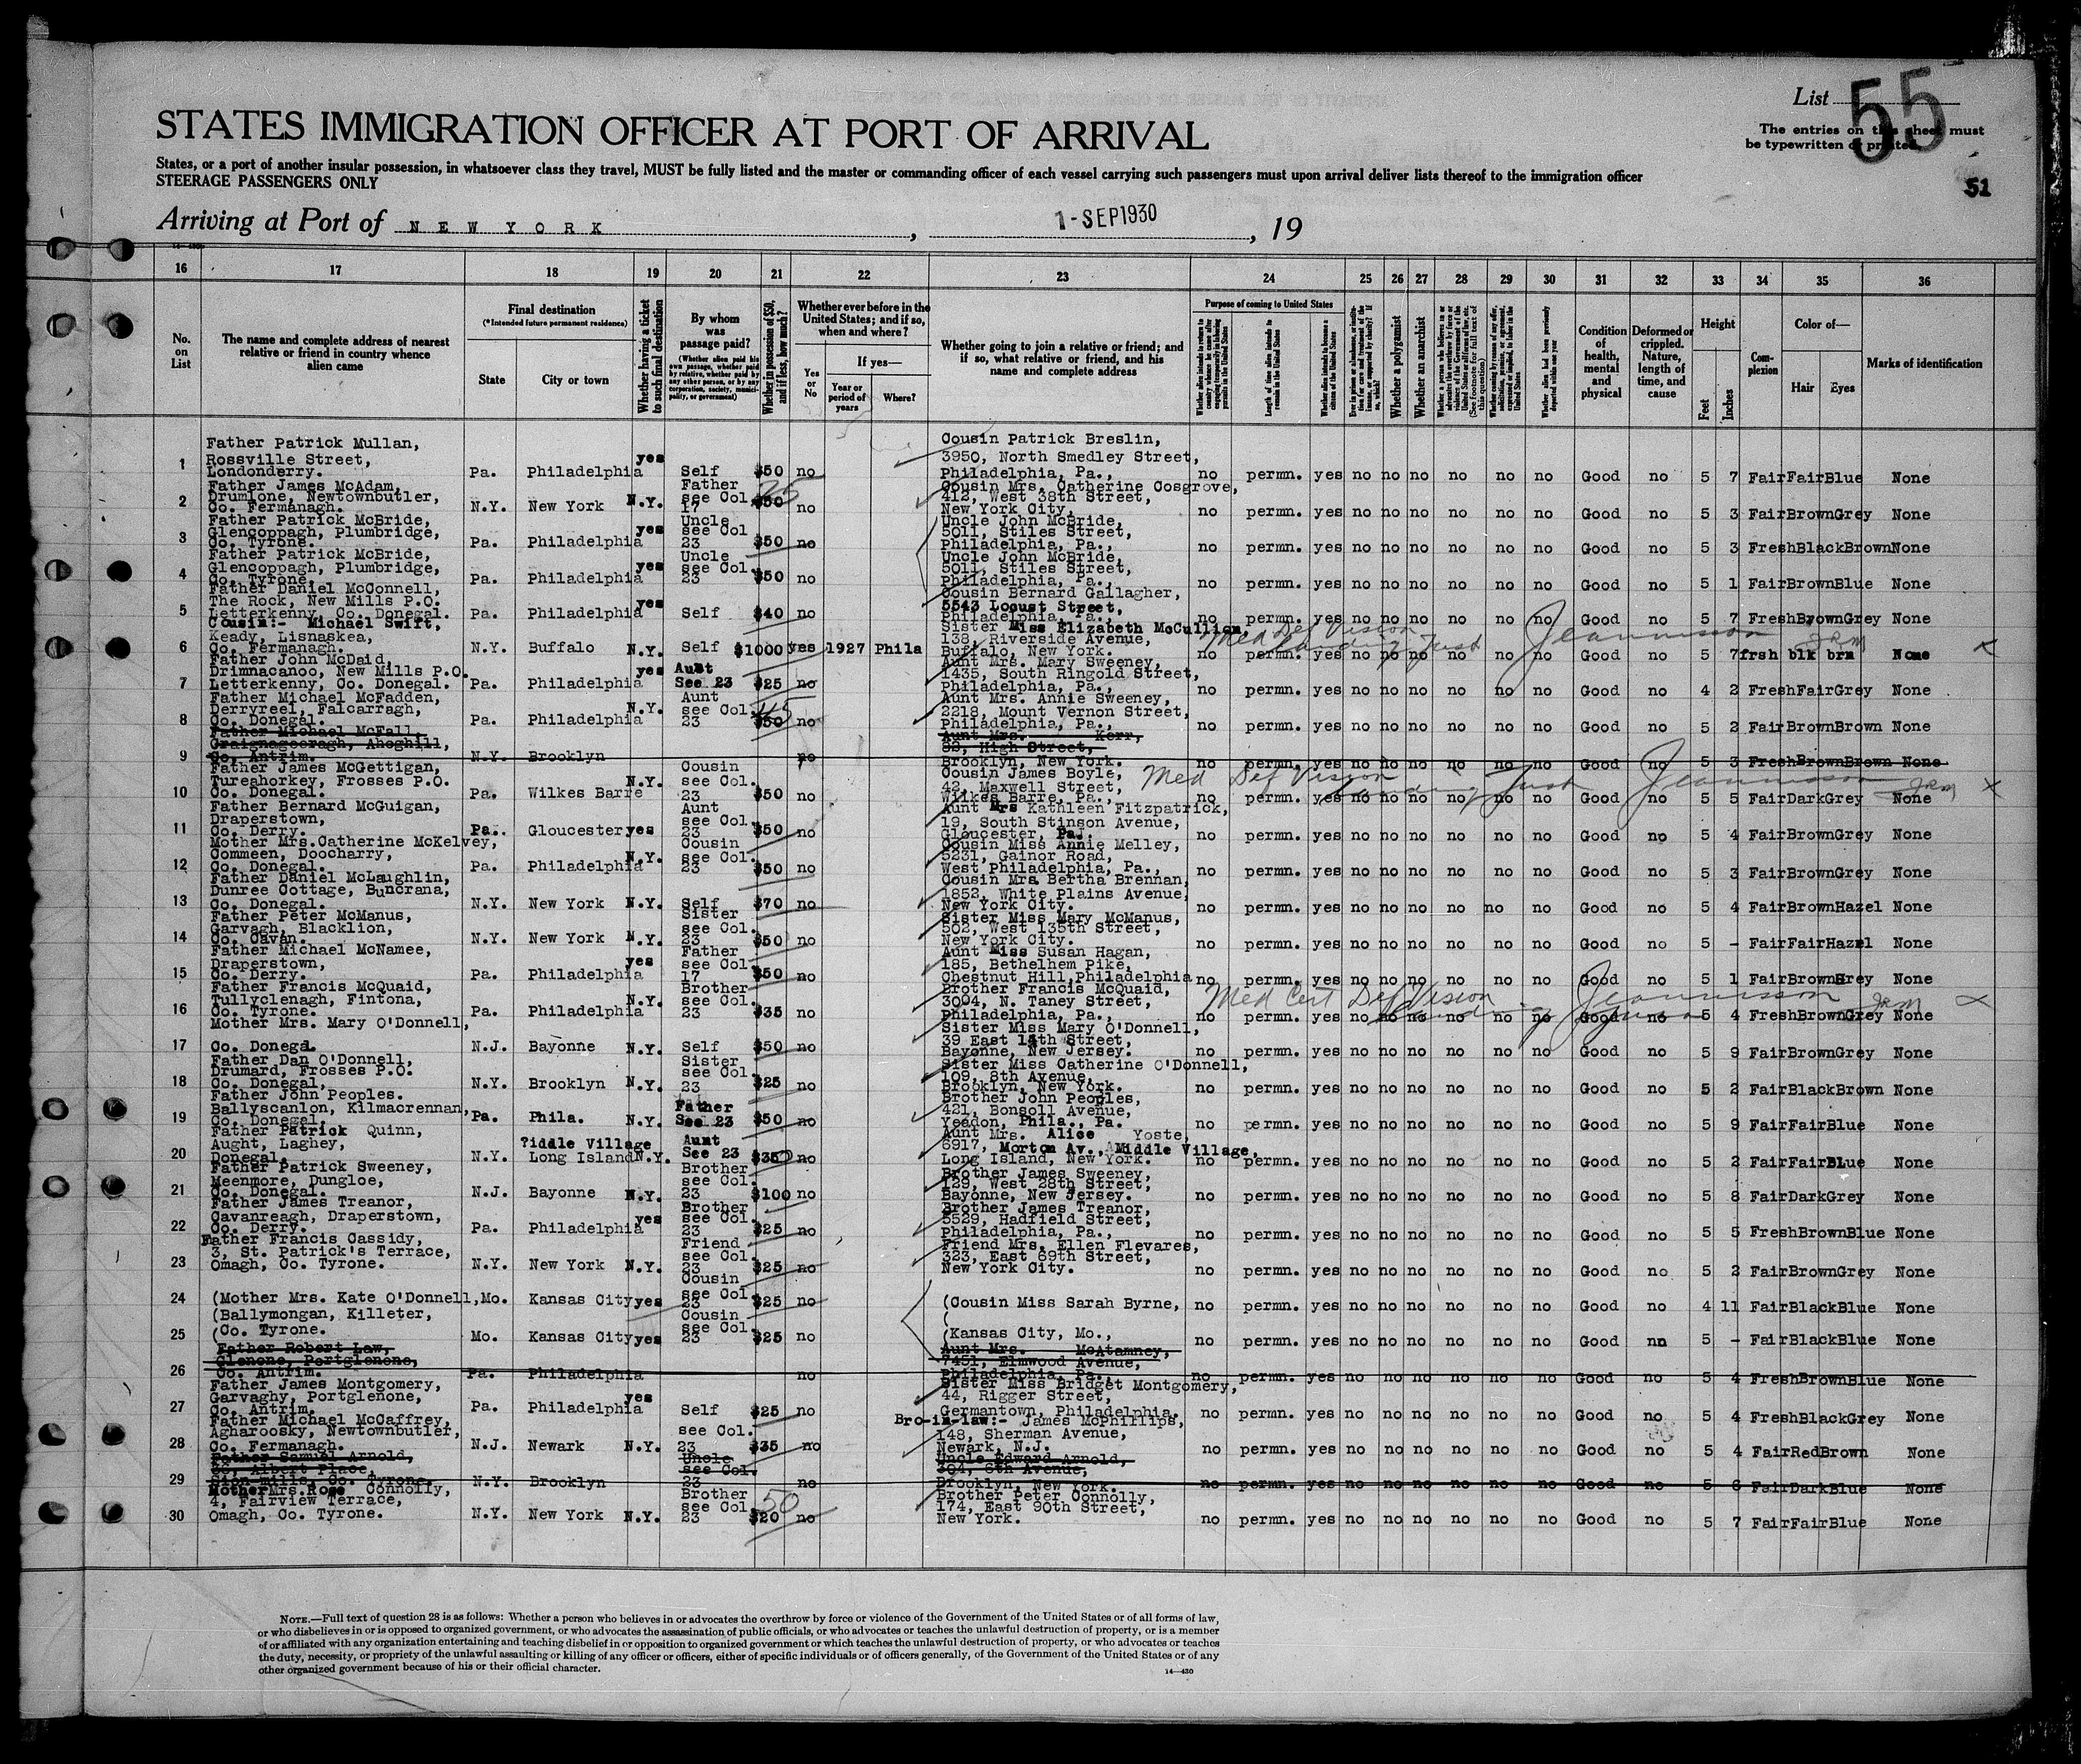 List 55
The entries on this sheet must
be typewritten or printed
STATES IMMIGRATION OFFICER AT PORT OF ARRIVAL
States, or a port of another insular possession, in whatsoever class they travel, MUST be fully listed and the master or commanding officer of each vessel carrying such passengers must upon arrival deliver lists thereof to the immigration officer
STEERAGE PASSENGERS ONLY
51
Arriving at Port of NEW YORK, 1-SEP1930, 19
16 17 18 19 20 21 22 23 24 25 26 27 28 29 30 31 32 33 34 35 36
No. on List
The name and complete address of nearest relative or friend in country whence alien came
Final destination
(*Intended future permanent residence)
State
City or town
Whether having a ticket to such final destination
By whom was passage paid?
(Whether alien paid his own passage, whether paid by relative, whether paid by any other person, or by any corporation, society, municipality, or government)
Whether in possession of $50, and if less, how much?
Whether ever before in the United States; and if so, when and where?
Yes or No
If yes—
Year or period of years
Where?
Whether going to join a relative or friend; and if so, what relative or friend, and his name and complete address
Purpose of coming to United States
Length of time alien intends to remain in the United States
Whether alien intends to become a citizen of the United States
Whether a polygamist
Whether an anarchist
Condition of health, mental and physical
Deformed or crippled. Nature, length of time, and cause
Height
Feet
Inches
Complexion
Color of—
Hair
Eyes
Marks of identification
1 Father Patrick Mullan, Rossville Street, Londonderry. Pa. Philadelphia yes Self $50 no Cousin Patrick Breslin, 3950, North Smedley Street, Philadelphia, Pa., no permn. yes no no no no no no Good no 5 7 Fair Fair Blue None
2 Father James McAdam, Drumlone, Newtownbutler, Co. Fermanagh. N.Y. New York N.Y. Father see Col. 17 $50 25 no Cousin Mrs. Catherine Cosgrove, 412, West 38th Street, New York City, no permn. yes no no no no no no Good no 5 3 Fair Brown Grey None
3 Father Patrick McBride, Glencoppagh, Plumbridge, Co. Tyrone. Pa. Philadelphia yes Uncle see Col 23 $50 no Uncle John McBride, 5011, Stiles Street, Philadelphia, Pa., no permn. yes no no no no no no Good no 5 3 Fresh Black Brown None
4 Father Patrick McBride, Glencoppagh, Plumbridge, Co. Tyrone. Pa. Philadelphia yes Uncle see Col. 23 $50 no Uncle John McBride, 5011, Stiles Street, Philadelphia, Pa., no permn. yes no no no no no no Good no 5 1 Fair Brown Blue None
5 Father Daniel McConnell, The Rock, New Mills P.O. Letterkenny, Co. Donegal. Pa. Philadelphia yes Self $40 no Cousin Bernard Gallagher, 5543 Locust Street, Philadelphia, Pa., no permn. yes no no no no no no Good no 5 7 Fresh Brown Grey None
6 Cousin:- Michael Swift, Keady, Lisnaskea, Co. Fermanagh. N.Y. Buffalo N.Y. Self $1000 yes 1927 Phila Sister Miss Elizabeth McCullion, 138, Riverside Avenue, Buffalo, New York. no permn. yes no no no no no no Good no 5 7 frsh blk brn None
Med Def Vision JRM
7 Father John McDaid, Drimnacanoo, New Mills P.O. Letterkenny, Co. Donegal. Pa. Philadelphia yes Aunt See 23 $25 no Aunt Mrs. Mary Sweeney, 1435, South Ringold Street, Philadelphia, Pa., no permn. yes no no no no no no Good no 4 2 Fresh Fair Grey None
8 Father Michael McFadden, Derryreel, Falcarragh, Co. Donegal. Pa. Philadelphia N.Y. Aunt see Col. 23 $50 45 no Aunt Mrs. Annie Sweeney, 2218, Mount Vernon Street, Philadelphia, Pa., no permn. yes no no no no no no Good no 5 2 Fair Brown Brown None
9 Father Michael McFall, Craignageeragh, Ahoghill, Co. Antrim. N.Y. Brooklyn no Aunt Mrs. Kerr, 82, High Street, Brooklyn, New York. no permn. yes no no no no no no Good no 5 3 Fresh Brown Brown None
10 Father James McGettigan, Tureahorkey, Frosses P.O. Co. Donegal. Pa. Wilkes Barre N.Y. Cousin see Col. 23 $50 no Cousin James Boyle, 42, Maxwell Street, Wilkes Barre, Pa., no permn. yes no no no no no no Good no 5 5 Fair Dark Grey None
Med Def Vision JRM
11 Father Bernard McGuigan, Draperstown, Co. Derry. Pa. Gloucester yes Aunt see Col. 23 $50 no Aunt Mrs Kathleen Fitzpatrick, 19, South Stinson Avenue, Gloucester, Pa. no permn. yes no no no no no no Good no 5 4 Fair Brown Grey None
12 Mother Mrs. Catherine McKelvey, Commeen, Doocharry, Co. Donegal. Pa. Philadelphia N.Y. Cousin see Col. 23 $50 no Cousin Miss Annie Melley, 5231, Gainor Road, West Philadelphia, Pa., no permn. yes no no no no no no Good no 5 3 Fair Brown Grey None
13 Father Daniel McLaughlin, Dunree Cottage, Buncrana, Co. Donegal. N.Y. New York N.Y. Self $70 no Cousin Mrs Bertha Brennan, 1852, White Plains Avenue, New York City. no permn. yes no no no no no no Good no 5 4 Fair Brown Hazel None
14 Father Peter McManus, Garvagh, Blacklion, Co. Cavan. N.Y. New York N.Y. Sister see Col. 23 $50 no Sister Miss Mary McManus, 502, West 135th Street, New York City. no permn. yes no no no no no no Good no 5 - Fair Fair Hazel None
15 Father Michael McNamee, Draperstown, Co. Derry. Pa. Philadelphia yes Father see Col 17 $50 no Aunt Miss Susan Hagan, 185, Bethelhem Pike, Chestnut Hill, Philadelphia no permn. yes no no no no no no Good no 5 1 Fair Brown Grey None
16 Father Francis McQuaid, Tullyclenagh, Fintona, Co. Tyrone. Pa. Philadelphia N.Y. Brother see Col. 23 $35 no Brother Francis McQuaid, 3004, N. Taney Street, Philadelphia, Pa., no permn. yes no no no no no no Good no 5 4 Fresh Brown Grey None
Med Cert Def Vision JRM
17 Mother Mrs. Mary O'Donnell, Co. Donegal. N.J. Bayonne N.Y. Self $50 no Sister Miss Mary O'Donnell, 39 East 14th Street, Bayonne, New Jersey. no permn. yes no no no no no no Good no 5 9 Fair Brown Grey None
18 Father Dan O'Donnell, Drumard, Frosses P.O. Co. Donegal, N.Y. Brooklyn N.Y. Sister see Col. 23 $25 no Sister Miss Catherine O'Donnell, 109, 8th Avenue, Brooklyn, New York. no permn. yes no no no no no no Good no 5 2 Fair Black Brown None
19 Father John Peoples. Ballyscanlon, Kilmacrennan, Co. Donegal, Pa. Phila. N.Y. Father See 23 $50 no Brother John Peoples, 421, Bonsoll Avenue, Yeadon, Phila., Pa. no permn. yes no no no no no no Good no 5 9 Fair Fair Blue None
20 Father Patrick Quinn, Aught, Laghey, Donegal. N.Y. ?iddle Village Long Island N.Y. Aunt See 23 $35 no Aunt Mrs. Alice Yoste, 6917, Morton Av., Middle Village, Long Island, New York. no permn. yes no no no no no no Good no 5 2 Fair Fair Blue None
21 Father Patrick Sweeney, Meenmore, Dungloe, Co. Donegal. N.J. Bayonne N.Y. Brother see Col. 23 $100 no Brother James Sweeney, 129, West 28th Street, Bayonne, New Jersey. no permn. yes no no no no no no Good no 5 8 Fair Dark Grey None
22 Father James Treanor, Cavanreagh, Draperstown, Co. Derry. Pa. Philadelphia yes Brother see Col. 23 $25 no Brother James Treanor, 5529, Hadfield Street, Philadelphia, Pa., no permn. yes no no no no no no Good no 5 5 Fresh Brown Blue None
23 Father Francis Cassidy, 3, St. Patrick's Terrace, Omagh, Co. Tyrone. N.Y. New York N.Y. Friend see Col. 23 $25 no Friend Mrs. Ellen Flevares, 323, East 69th Street, New York City. no permn. yes no no no no no no Good no 5 2 Fair Brown Grey None
24 (Mother Mrs. Kate O'Donnell, Mo. Kansas City yes Cousin see Col. 23 $25 no (Cousin Miss Sarah Byrne, no permn. yes no no no no no no Good no 4 11 Fair Black Blue None
(Ballymongan, Killeter,
25 (Co. Tyrone. Mo. Kansas City yes Cousin see Col. 23 $25 no (Kansas City, Mo., no permn. yes no no no no no no Good no 5 - Fair Black Blue None
26 Father Robert Law, Glenone, Portglenone, Co. Antrim. Pa. Philadelphia no Aunt Mrs. McAtamney, 7451, Elmwood Avenue, Philadelphia, Pa., no permn. yes no no no no no no Good no 5 4 Fresh Brown Blue None
27 Father James Montgomery, Garvaghy, Portglenone, Co. Antrim. Pa. Philadelphia yes Self $25 no Sister Miss Bridget Montgomery, 44, Rigger Street, Germantown, Philadelphia. no permn. yes no no no no no no Good no 5 4 Fresh Black Grey None
28 Father Michael McCaffrey, Agharoosky, Newtownbutler, Co. Fermanagh. N.J. Newark N.Y. see Col. 23 $35 no Bro-in-law:- James McPhillips, 148, Sherman Avenue, Newark, N.J. no permn. yes no no no no no no Good no 5 4 Fair Red Brown None
29 Father Samuel Arnold, Albert Place, Sion mills, Co. Tyrone, N.Y. Brooklyn Uncle see Col. 23 no Uncle Edward Arnold, 304, 6th Avenue, Brooklyn, New York. no permn. yes no no no no no no Good no 5 6 Fair Dark Blue None
30 Mother Mrs. Rose Connolly, 4, Fairview Terrace, Omagh, Co. Tyrone. N.Y. New York N.Y. Brother see Col. 23 $20 50 no Brother Peter Connolly, 174, East 90th Street, New York. no permn. yes no no no no no no Good no 5 7 Fair Fair Blue None
NOTE.—Full text of question 28 is as follows: Whether a person who believes in or advocates the overthrow by force or violence of the Government of the United States or of all forms of law,
or who disbelieves in or is opposed to organized government, or who advocates the assassination of public officials, or who advocates or teaches the unlawful destruction of property, or is a member
of or affiliated with any organization entertaining and teaching disbelief in or opposition to organized government or which teaches the unlawful destruction of property, or who advocates or teaches
the duty, necessity, or propriety of the unlawful assaulting or killing of any officer or officers, either of specific individuals or of officers generally, of the Government of the United States or of any
other organized government because of his or their official character.
14—430